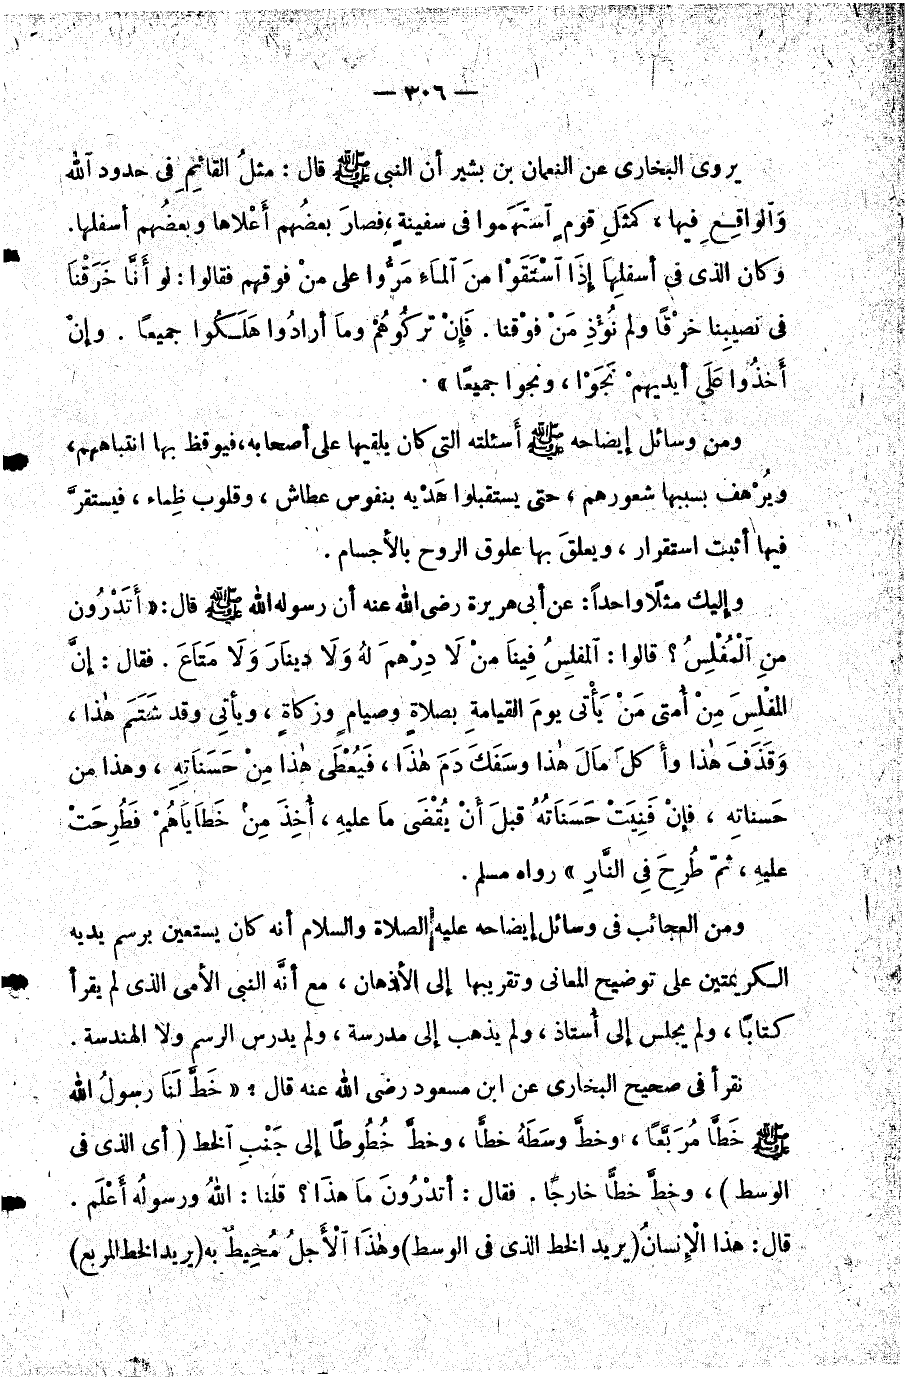 — ٣٠٦ —
يروى البخارى عن النعمان بن بشير أن النبى ﷺ قال : مثلُ القائمِ فى حدود آلله
وَآلواقِعِ فيها ، كمثَلِ قومٍ آستَهَموا فى سفينةٍ ، فصارَ بعضُهم أَعْلاها وبعضُهم أسفلها .
وكان الذى فى أسفلِهَا إِذَا آسْتَقَوْا منَ آلمَاءِ مَرُّوا على منْ فوقهم فقالوا : لو أَنَّا خَرَقْنَا
فى نصيبِنا خرْقًا ولم نُؤْذِ مَنْ فوْقنا . فَإِنْ تركُوهُمْ وما أرادُوا هَلَكُوا جميعًا . وإنْ
أَخذُوا عَلَى أيديهمْ نَجَوْا ، ونجوا جميعًا » .
ومن وسائل إيضاحه ﷺ أسئلته التى كان يلقيها على أصحابه ، فيوقظ بها انتباههم ،
ويُرْهف بسببها شعورهم ، حتى يستقبلوا هَدْيه بنفوس عطاش ، وقلوب ظِماء ، فيستقرَّ
فيها أثبت استقرار ، ويعلقَ بها علوق الروح بالأجسام .
وإليك مثلًا واحداً : عن أبى هريرة رضى الله عنه أن رسوله الله ﷺ قال : « أَتَدْرُون
منِ آلْمُفْلِسُ ؟ قالوا : آلمفلِسُ فِينَا منْ لَا دِرْهمَ لهُ وَلَا دِينَارَ وَلَا مَتَاعَ . فقال : إنَّ
المفْلِسَ مِنْ أُمتى مَنْ يَأْتى يومَ القيامةِ بصلاةٍ وصيامٍ وزكاةٍ ، ويأتِى وقد شَتَمَ هٰذا ،
وَقَذَفَ هٰذا وأَكلَ مالَ هٰذا وسَفَكَ دَمَ هٰذَا ، فَيُعْطَى هٰذا مِنْ حَسَنَاتِهِ ، وهذا من
حَسناتِه ، فإنْ فَنِيَتْ حَسَنَاتُهُ قبلَ أَنْ يُقْضَى مَا عليهِ ، أُخِذَ مِنْ خَطَايَاهُمْ فَطُرِحَتْ
عليهِ ، ثمّ طُرِحَ فِى النَّارِ » رواه مسلم .
ومن العجائب فى وسائل إيضاحه عليه الصلاة والسلام أنه كان يستعين برسم يديه
الكريمتين على توضيح المعانى وتقريبها إلى الأذهان ، مع أنَّه النبى الأمى الذى لم يقرأ
كتابًا ، ولم يجلس إلى أُستاذ ، ولم يذهب إلى مدرسة ، ولم يدرس الرسم ولا الهندسة .
نقرأ فى صحيح البخارى عن ابن مسعود رضى الله عنه قال : « خَطَّ لَنَا رسولُ الله
ﷺ خَطًّا مُرَبَّعًا ، وخطَّ وسَطَهُ خطًّا ، وخطَّ خُطُوطًا إلى جَنْبِ آلخط ( أى الذى فى
الوسط ) ، وخطَّ خطًّا خارجًا . فقال : أتدْرُونَ مَا هذَا ؟ قلنا : اللهُ ورسولُه أَعْلَم .
قال : هذا الْإِنسانُ (يريد الخط الذى فى الوسط) وهٰذَا آلْأَجلُ مُحِيطٌ به (يريد الخط المربع)